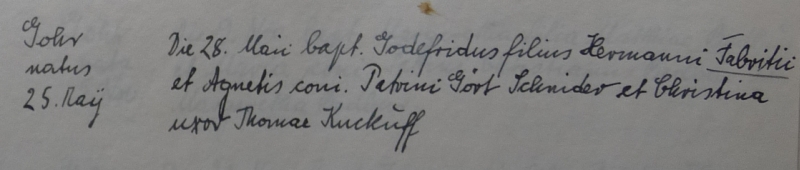 Gohr
natus
25. Maÿ
Die 28. Maii bapt. Godefridus filius Hermanni Fabritii
et Agnetis coni. Patrini Gört Schnider et Christina
uxor Thomae Kuckuff